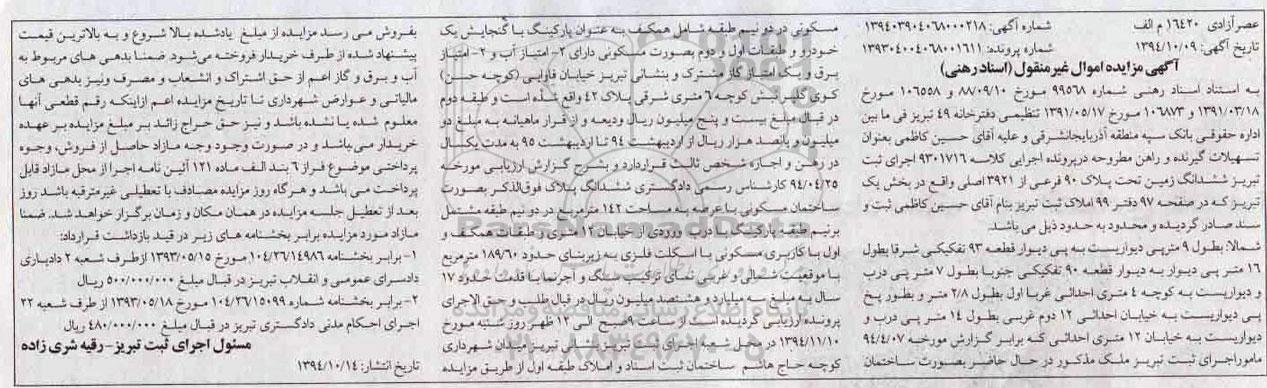 عصرآزادی ۱۶۴۲۰ م الف
شماره آگهی: ۱۳۹۴۰۳۹۰۴۰۶۸۰۰۰۲۱۸
تاریخ آگهی: ۱۳۹۴/۱۰/۰۹
شماره پرونده: ۱۳۹۳۰۴۰۰۴۰۶۸۰۰۱۶۱۱
آگهی مزایده اموال غیرمنقول (اسناد رهنی)
به استناد اسناد رهنی شماره ۹۹۵۶۸ مورخ ۸۸/۰۹/۱۰ و ۱۰۶۵۵۸ مورخ
۱۳۹۱/۰۳/۱۸ و ۱۰۶۸۷۳ مورخ ۱۳۹۱/۰۵/۱۷ تنظیمی دفترخانه ۴۹ تبریز فی ما بین
اداره حقوقی بانک سپه منطقه آذربایجانشرقی و علیه آقای حسین کاظمی بعنوان
تسهیلات گیرنده و راهن مطروحه درپرونده اجرایی کلاسه ۹۳۰۱۷۱۶ اجرای ثبت
تبریز ششدانگ زمین تحت پلاک ۹۰ فرعی از ۳۹۲۱ اصلی واقع در بخش یک
تبریز که در صفحه ۹۷ دفتر ۹۹ املاک ثبت تبریز بنام آقای حسین کاظمی ثبت و
سند صادر گردیده و محدود به حدود ذیل می باشد.
شمالا: بطول ۹ مترپی دیواریست به پی دیوار قطعه ۹۳ تفکیکی شرقا بطول
۱۶ متر پی دیوار به دیوار قطعه ۹۰ تفکیکی جنوبا بطول ۷ متر پی درب
و دیواریست به کوچه ۴ متری احداثی غربا اول بطول ۲/۸ متر و بطور پخ
پی دیواریست به خیابان احداثی ۱۲ دوم غربی بطول ۱۴ متر پی درب و
دیواریست به خیابان ۱۲ متری احداثی که برابر گزارش مورخه ۹۴/۴/۰۷
ماموراجرای ثبت تبریز ملک مذکور در حال حاضر بصورت ساختمان
مسکونی در دو نیم طبقه شامل همکف به عنوان پارکینگ با گنجایش یک
خودرو و طبقات اول و دوم بصورت مسکونی دارای ۲- امتیاز آب و ۲- امتیاز
برق و یک امتیاز گاز مشترک و بنشانی تبریز خیابان فارابی (کوچه حسن)
کوی گلبرایش کوچه ۶ متری شرقی پلاک ۴۲ واقع شده است و طبقه دوم
در قبال مبلغ بیست و پنج میلیون ریال ودیعه و از قرار ماهیانه به مبلغ دو
میلیون و پانصد هزار ریال از اردیبهشت ۹۴ تا اردیبهشت ۹۵ به مدت یکسال
در رهن و اجاره شخص ثالث قراردارد و بشرح گزارش ارزیابی مورخه
۹۴/۰۴/۲۵ کارشناس رسمی دادگستری ششدانگ پلاک فوق الذکر بصورت
ساختمان مسکونی با عرصه به مساحت ۱۴۲ مترمربع در دو نیم طبقه مشتمل
برنیم طبقه پارکینگ با درب ورودی از خیابان ۱۲ متری و طبقات همکف و
اول با کاربری مسکونی با اسکلت فلزی به زیربنای حدود ۱۸۹/۶۰ مترمربع
با موقعیت شمالی و غربی نمای ترکیب سنگ و آجرنما با قدمت حدود ۱۷
سال به مبلغ سه میلیارد و هشتصد میلیون ریال در قبال طلب و حق الاجرای
پرونده ارزیابی گردیده است از ساعت ۹ صبح الی ۱۲ ظهر روز شنبه مورخ
۱۳۹۴/۱۱/۱۰ در محل شعبه اجرای ثبت تبریز بنشانی تبریز میدان شهرداری
کوچه حاج هاشم ساختمان ثبت اسناد و املاک طبقه اول از طریق مزایده
بفروش می رسد مزایده از مبلغ یادشده بالا شروع و به بالاترین قیمت
پیشنهاد شده از طرف خریدار فروخته می شود ضمنا بدهی های مربوط به
آب و برق و گاز اعم از حق اشتراک و انشعاب و مصرف ونیز بدهی های
مالیاتی و عوارض شهرداری تا تاریخ مزایده اعم ازاینکه رقم قطعی آنها
معلوم شده یا نشده باشد و نیز حق حراج زائد بر مبلغ مزایده بر عهده
خریدار می باشد و در صورت وجود وجه مازاد حاصل از فروش، وجوه
پرداختی موضوع فراز ۶ بند الف ماده ۱۲۱ آئین نامه اجرا از محل مازاد قابل
پرداخت می باشد و هرگاه روز مزایده مصادف با تعطیلی غیرمترقبه باشد روز
بعد از تعطیل جلسه مزایده در همان مکان و زمان برگزار خواهد شد. ضمنا
مازاد مورد مزایده برابر بخشنامه های زیر در قید بازداشت قرارداد:
۱- برابر بخشنامه ۱۰۴/۲۶/۱۴۹۸۶ مورخ ۱۳۹۳/۰۵/۱۵ ازطرف شعبه ۲ دادیاری
دادسرای عمومی و انقلاب تبریز در قبال مبلغ ۵۰۰/۰۰۰/۰۰۰ ریال
۲- برابر بخشنامه شماره ۱۰۴/۲۶/۱۵۰۹۹ مورخ ۱۳۹۳/۰۵/۱۸ از طرف شعبه ۲۲
اجرای احکام مدنی دادگستری تبریز در قبال مبلغ ۴۸۰/۰۰۰/۰۰۰ ریال
مسئول اجرای ثبت تبریز- رقیه شری زاده
تاریخ انتشار: ۱۳۹۴/۱۰/۱۴